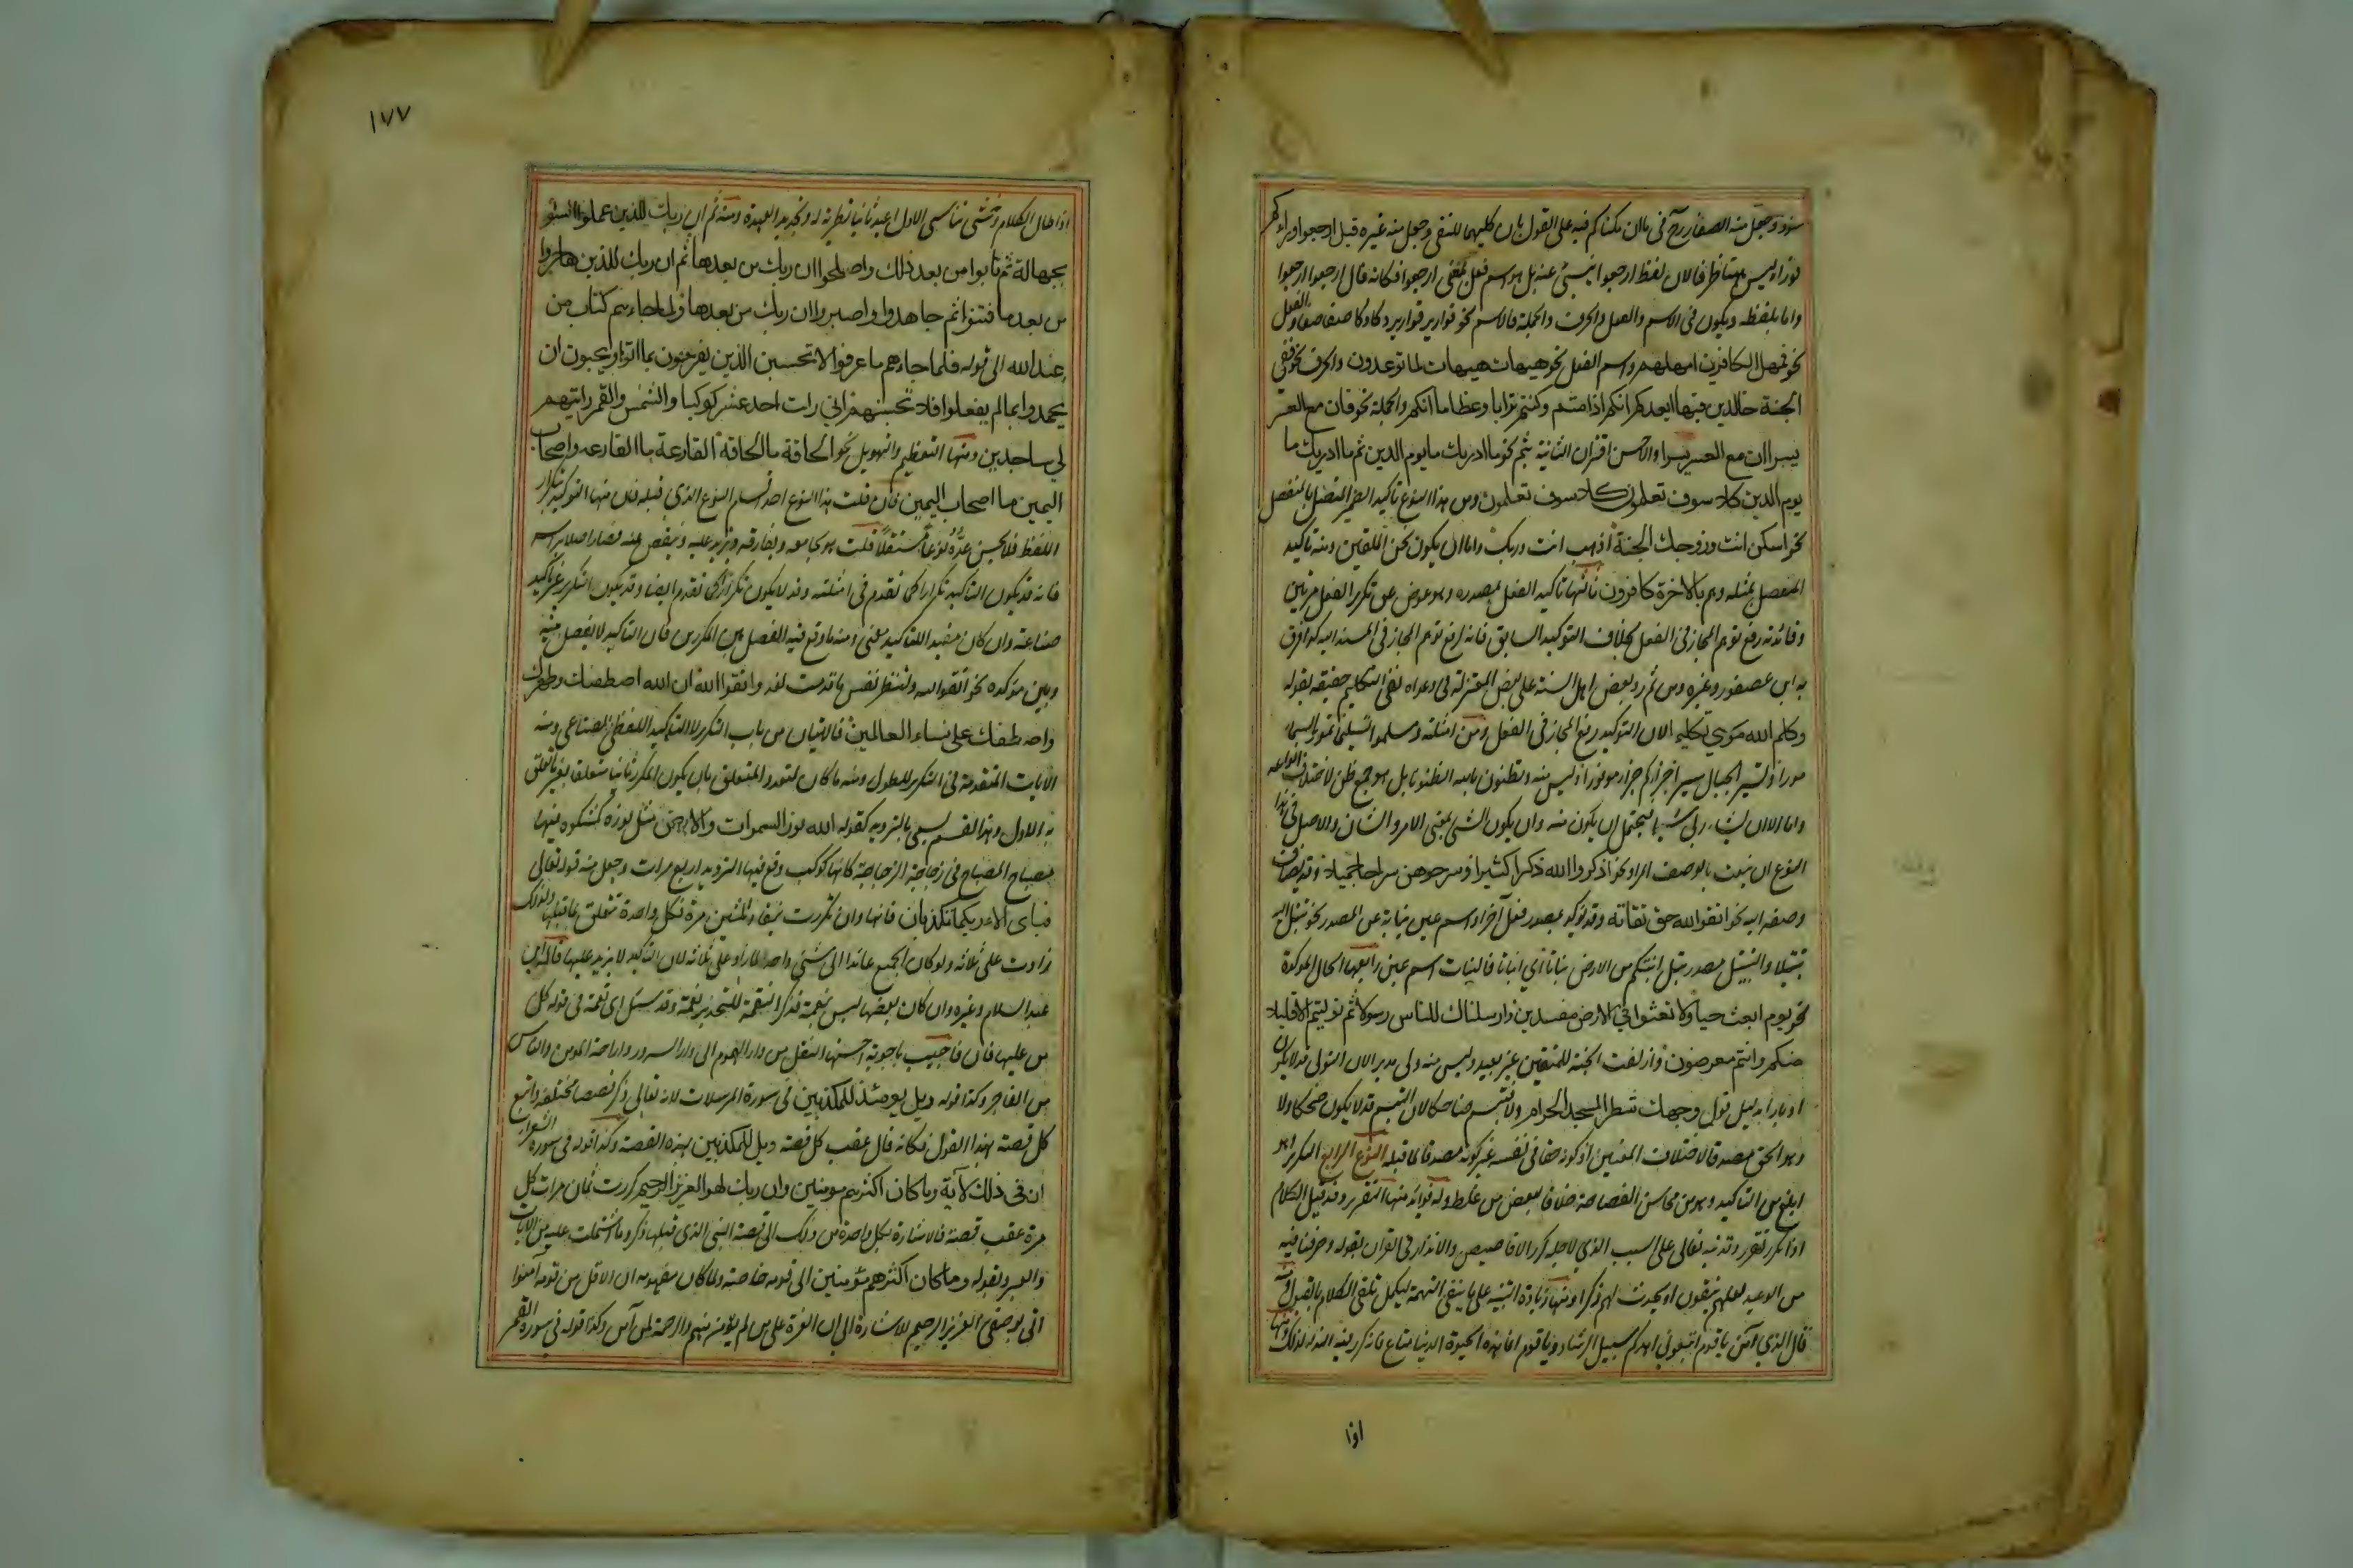 سود وجعل منه الصفار رح في ما ان مكناكم فيه على القول بان كليهما للنفي وجعل منه غيره قيل ارجعوا وراءكم
نورا وليس بمتناظر فالان لفظ ارجعوا ينبئ عنه بل هو اسم فعل بمعنى ارجعوا فكانه قال ارجعوا ارجعوا
واما بلفظه ويكون في الاسم والفعل والحرف والجملة فالاسم نحو قوارير قوارير دكا دكا صفا صفا والفعل
نحو فمهل الكافرين امهلهم واسم الفعل نحو هيهات هيهات لما توعدون والحرف نحو ففي
الجنة خالدين فيها ايعدكم انكم اذا متم وكنتم ترابا وعظاما انكم والجملة نحو فان مع العسر
يسرا ان مع العسر يسرا والاحسن اقتران الثانية بثم نحو ما ادريك ما يوم الدين ثم ما ادريك ما
يوم الدين كلا سوف تعلمون كلا سوف تعلمون ومن هذا النوع تاكيد الضمير المتصل بالمنفصل
نحو اسكن انت وزوجك الجنة اذهب انت وربك واما ان يكون نحن الملقين ومنه تاكيد
المنفصل بمثله وهم بالاخرة كافرون ثالثها تاكيد الفعل بمصدره وهو عوض عن تكرر الفعل مرتين
وفائدته رفع توهم المجاز في الفعل بخلاف التوكيد السابق فانه لرفع توهم المجاز في المسند اليه كذا فرق
به ابن عصفور وغيره ومن ثم رد بعض اهل السنة على بعض المعتزلة في دعواه نفي التكليم حقيقة بقوله
وكلم الله موسى تكليما لان التوكيد رفع المجاز في الفعل ومن امثلته وسلموا تسليما تمور السماء
مورا وتسير الجبال سيرا جزاؤكم جزاء موفورا وليس منه وتظنون بالله الظنونا بل هو جمع ظن لاختلاف انواعه
واما الا ان يشاء ربي شيئا فيحتمل ان يكون منه وان يكون الشئ بمعنى الامر والشان والاصل في هذا
النوع ان ينعت بالوصف المراد نحو اذكروا الله ذكرا كثيرا وسرحوهن سراحا جميلا وقد يضاف
وصفه اليه نحو اتقوا الله حق تقاته وقد يؤكد بمصدر فعل آخر او اسم عين نيابة عن المصدر نحو تبتل اليه
تبتيلا والتبتيل مصدر بتل انبتكم من الارض نباتا اي انباتا فالنبات اسم عين رابعها الحال الموكدة
نحو يوم ابعث حيا ولا تعثوا في الارض مفسدين وارسلناك للناس رسولا ثم توليتم الا قليلا
منكم وانتم معرضون وازلفت الجنة للمتقين غير بعيد وليس منه ولى مدبرا لان التولي قد لا يكون
ادبارا بدليل فول وجهك شطر المسجد الحرام ولا فتبسم ضاحكا لان التبسم قد لا يكون ضحكا ولا
وهو الحق مصدقا لاختلاف المعنيين اذ كونه حقا في نفسه غير كونه مصدقا لما قبله النوع الرابع التكرير وهو
ابلغ من التاكيد وهو من محاسن الفصاحة خلافا لبعض من غلط وله فوائد منها التقرير وقد قيل الكلام
اذا تكرر تقرر وقد نبه تعالى على السبب الذي لاجله كرر الاقاصيص والانذار في القرآن بقوله وصرفنا فيه
من الوعيد لعلهم يتقون او يحدث لهم ذكرا ومنها زيادة التنبيه على ما ينفي التهمة ليكمل تلقي الكلام بالقبول ومنه
قال الذي آمن يا قوم اتبعوني اهدكم سبيل الرشاد ويا قوم انما هذه الحيوة الدنيا متاع فانه كرر فيه النداء لذلك ومنها
اذا
١٧٧
اذا طال الكلام وخشي تناسي الاول اعيد ثانيا تطرية له وتجديدا لعهده ومنه ثم ان ربك للذين عملوا السوء
بجهالة ثم تابوا من بعد ذلك واصلحوا ان ربك من بعدها ثم ان ربك للذين هاجروا
من بعد ما فتنوا ثم جاهدوا واصبروا ان ربك من بعدها ولما جاءهم كتاب من
عند الله الى قوله فلما جاءهم ما عرفوا لا تحسبن الذين يفرحون بما اتوا ويحبون ان
يحمدوا بما لم يفعلوا فلا تحسبنهم اني رات احد عشر كوكبا والشمس والقمر رايتهم
لي ساجدين ومنها التعظيم والتهويل نحو الحاقة ما الحاقة القارعة ما القارعه واصحاب
اليمين ما اصحاب اليمين فان قلت هذا النوع احد اقسام النوع الذي قبله فان منها التوكيد بتكرار
اللفظ فلا يحسن عده نوعا مستقلا قلت هو يجامعه ويفارقه ويزيد عليه وينقص عنه فصار اصلا براسه
فانه قد يكون التاكيد تكرارا كما تقدم في امثلته وقد لا يكون تكرارا كما تقدم ايضا وقد يكون التكرير غير تاكيد
صناعة وان كان مفيدا للتاكيد معنى ومنه ما وقع فيه الفصل بين المكررين فان التاكيد لا يفصل بينه
وبين مؤكده نحو اتقوا الله ولتنظر نفس ما قدمت لغد واتقوا الله ان الله اصطفىك وطهرك
واصطفىك على نساء العالمين فالايتان من باب التكرير لا التوكيد اللفظي الصناعي ومنه
الايات المتقدمة في التكرير للطول ومنه ما كان لتعدد المتعلق بان يكون المكرر ثانيا متعلقا بغير ما تعلق
به الاول وهذا القسم يسمى بالترديد كقوله الله نور السموات والارض مثل نوره كمشكوة فيها
مصباح المصباح في زجاجة الزجاجة كانها كوكب وقع فيها الترديد اربع مرات وجعل منه قوله تعالى
فباى الاء ربكما تكذبان فانها وان تكررت نيفا وثلثين مرة فكل واحدة تتعلق بما قبلها ولذلك
زادت على ثلاثة ولو كان الجميع عائدا الى شئ واحد لما زاد على ثلاثة لان التاكيد لا يزيد عليها قاله ابن
عبد السلام وغيره وان كان بعضها ليس بنعمة فذكر النقمة للتحذير نعمة وقد سئل اي نعمة في قوله كل
من عليها فان فاجيب باجوبة احسنها النقل من دار الهموم الى دار السرور واراحة المومن والناس
من الفاجر وكذا قوله ويل يومئذ للمكذبين في سورة المرسلات لانه تعالى ذكر قصصا مختلفة واتبع
كل قصة بهذا القول فكانه قال عقب كل قصة ويل للمكذبين بهذه القصة وكذا قوله في سورة الشعراء
ان في ذلك لآية وما كان اكثرهم مومنين وان ربك لهو العزيز الرحيم كررت ثمان مرات كل
مرة عقب قصة فالاشارة بكل واحدة من ذلك الى قصة النبي الذي قبلها ذكر وما اشتملت عليه من الآيات
والعبر وبقوله وما كان اكثرهم مؤمنين الى قومه خاصة ولما كان مفهومه ان الاقل من قومه آمنوا
اتى بوصفي العزيز الرحيم للاشارة الى ان العزة على من لم يؤمن منهم والرحمة لمن آمن وكذا قوله في سورة القمر